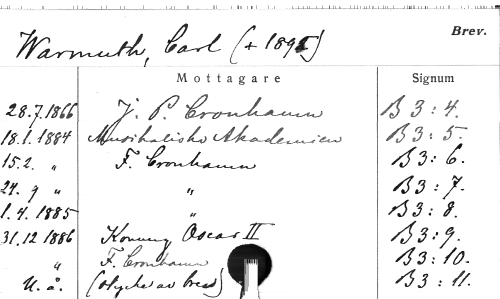 Brev.
Warmuth, Carl (+ 1895)
Mottagare Signum
28.7.1866 J. P. Cronhamn B 3 : 4.
18.1. 1884 Musikaliska Akademien B 3 : 5.
15.2. „ F. Cronhamn B 3 : 6.
24. 9 „ „ B 3 : 7.
1.4. 1885 „ B 3 : 8.
31.12 1886 Konung Oscar II B 3 : 9.
„ F. Cronhamn B 3 : 10.
U. å. (stycke av brev) B 3 : 11.